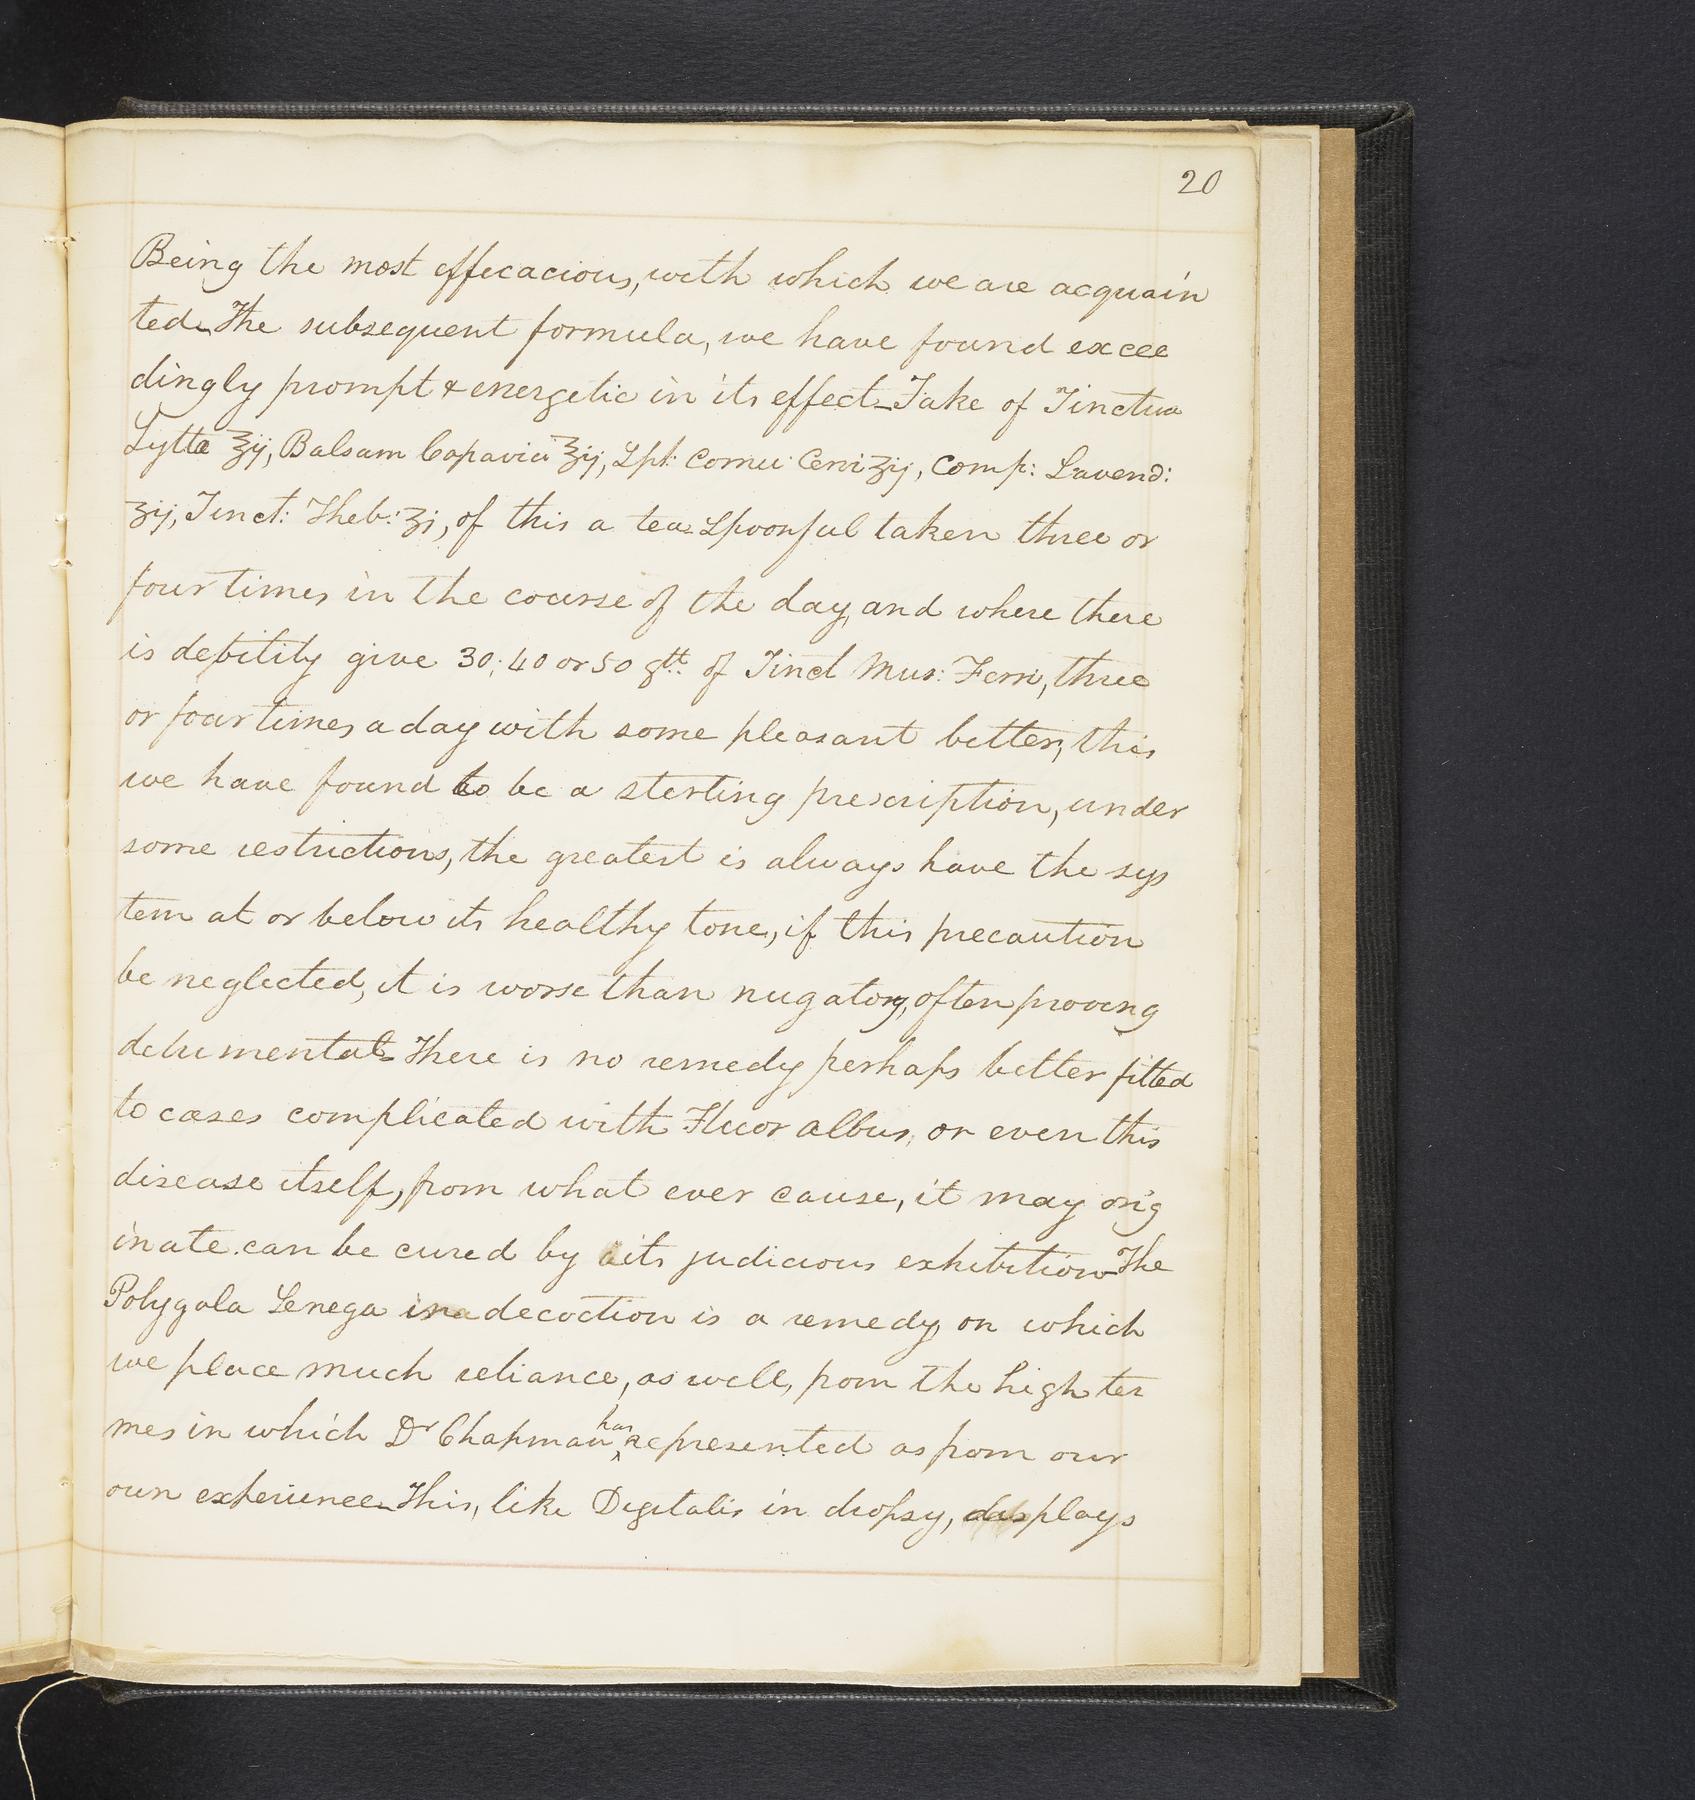 20
Being the most effecacious, with which we are acquain
ted. The subsequent formula, we have found excee
dingly prompt & energetic in its effect_ Take of Tinctua
Lytta ʒij, Balsam Copavia ʒij, Spt: Cornu Cervi ʒij, Comp: Lavend:
ʒij, Tinct: Theb: ʒj, of this a tea-Spoonful taken three or
four times in the course of the day, and where there
is debility give 30, 40 or 50 gtt. of Tinct Mur: Ferri, three
or four times a day with some pleasant bitter, this
we have found to be a sterling prescription, under
some restrictions, the greatest is always have the sys
tem at or below its healthy tone, if this precaution
be neglected, it is worse than nugatory, often proving
detrimental_ There is no remedy perhaps better fitted
to cases complicated with Fluor albus, or even this
disease itself, from what ever cause, it may orig
inate can be cured by its judicious exhibition_ The
Polygala Senega in a decoction is a remedy on which
we place much reliance, as well, from the high ter
mes in which Dr Chapman has represented as from our
own experience_ This, like Digitalis in dropsy, displays